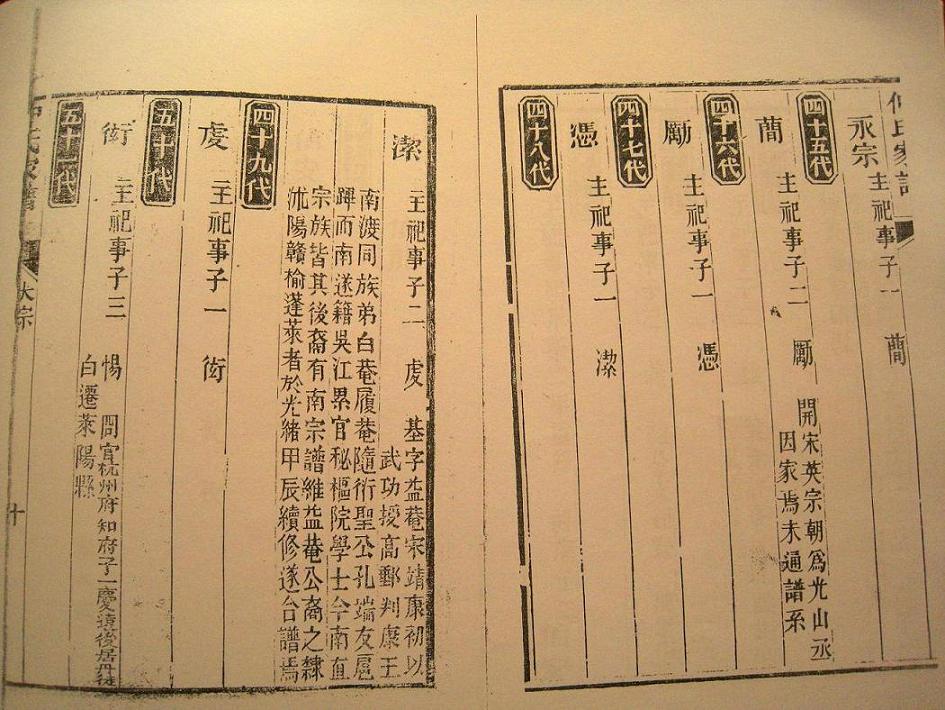 仲氏家譜
永宗 主祀事子一 蕳
四十五代
蕳 主祀事子二 勵 開宋英宗朝爲光山丞
因家焉未通譜系
四十六代
勵 主祀事子一 憑
四十七代
憑 主祀事子一 潔
四十八代
潔 主祀事子二 虔 基字益菴宋靖康初以
武功授高郵判康王
南渡同族弟白菴履菴隨衍聖公孔端友扈
蹕而南遂籍吳江累官秘樞院學士今南直
宗族皆其後裔有南宗譜維益菴公裔之隸
沭陽贛榆蓬萊者於光緒甲辰續修遂合譜焉
四十九代
虔 主祀事子一
五十代
主祀事子三 惕 官杭州府知府子一慶遠後居丹徒
白遷萊陽縣
五十一代
仲氏家譜 大宗 十